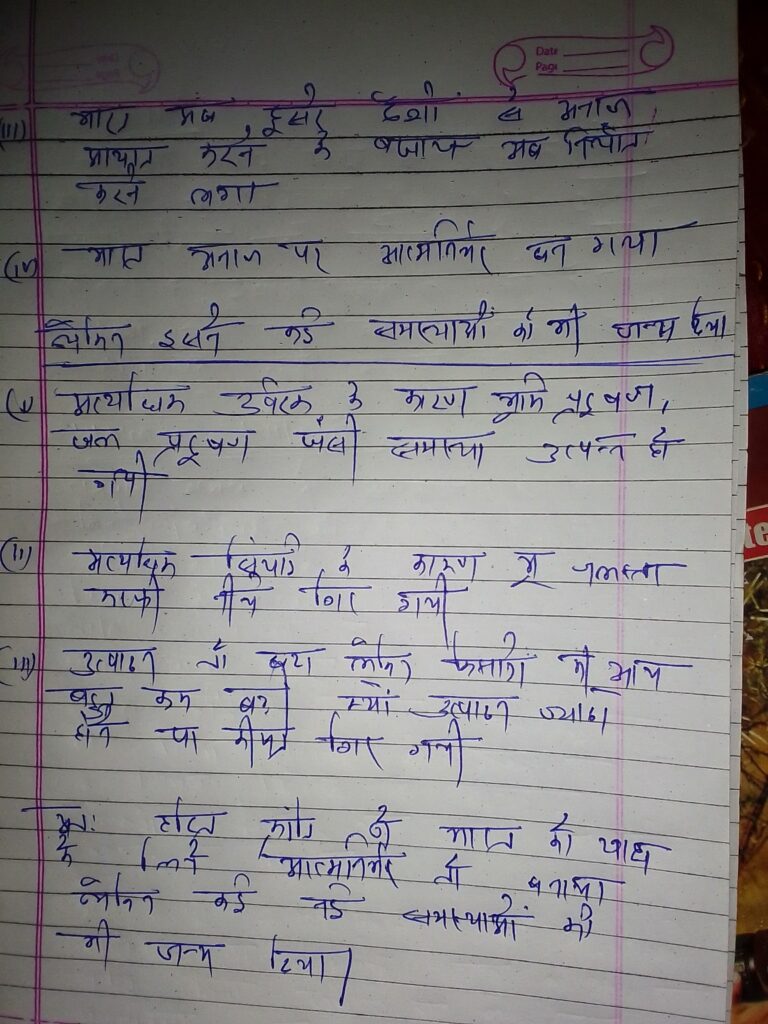 Date
Page
(iii) भारत अब दूसरे देशों से अनाज
आयात करने के बजाय अब निर्यात
करने लगा
(iv) भारत अनाज पर आत्मनिर्भर बन गया
लेकिन इसने कई समस्याओं को भी जन्म दिया
(i) अत्याधिक उर्वरक के कारण भूमि प्रदूषण,
जल प्रदूषण जैसी समस्या उत्पन्न हो
गयी
(ii) अत्यधिक सिंचाई के कारण भू जलस्तर
काफी नीचे गिर गयी
(iii) उत्पादन तो बढ़ा लेकिन किसानों की आय
बहुत कम बढ़ी क्यों उत्पादन ज्यादा
होने पर कीमत गिर गयी
अतः हरित क्रांति ने भारत को खाद्य
के लिये आत्मनिर्भर तो बनाया
लेकिन कई नई समस्याओं को
भी जन्म दिया।